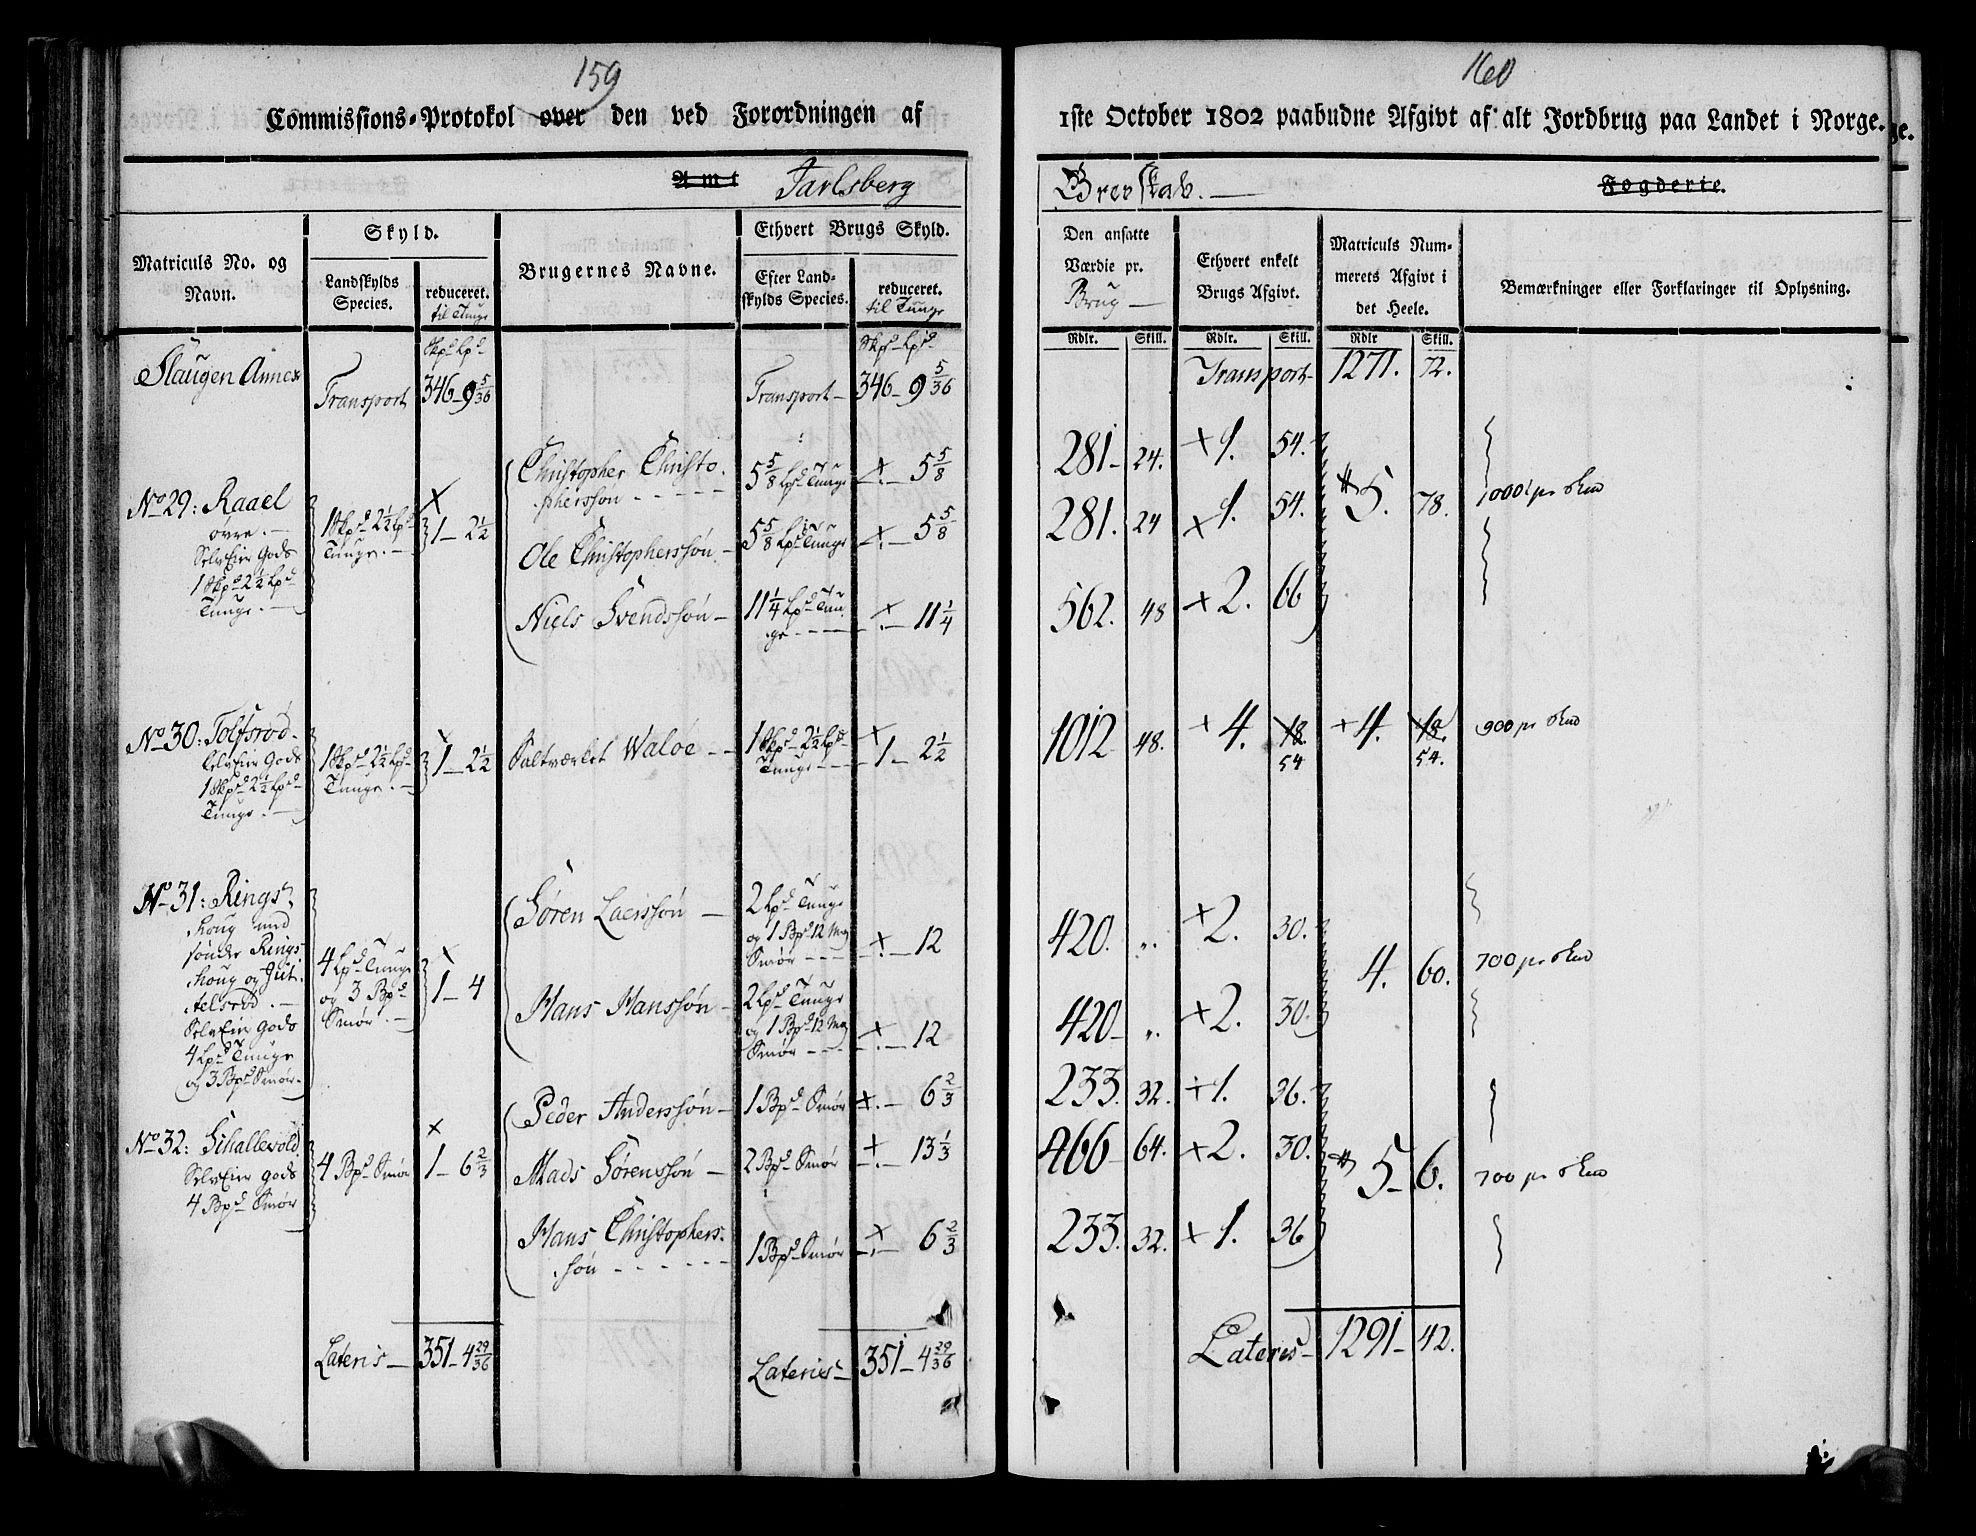 159
Commissions-Protokol over den ved Forordningen af
Amt Jarlsberg
Matriculs No. og Navn.
Skyld.
Landskylds Species.
reduceret. til Tunge
Brugernes Navne.
Ethvert Brugs Skyld.
Efter Landskylds Species.
reduceret. til Tunge
Skpd Lpd
Skpd Lpd
Slaugen Annex
Transport 346 - 9 5/36
Transport - 346 - 9 5/36
No 29: Raael
øvre. -
SelvEier Gods
1 Skpd 2 1/2 Lpd
Tunge. -
1 Skpd 2 1/2 Lpd
Tunge. -
1 - 2 1/2
Christopher Christo-
phersøn - - - - -
5 5/8 Lpd Tunge
5 5/8
Ole Christophersøn. -
5 5/8 Lpd Tunge
5 5/8
Niels Svendssøn -
11 1/4 Lpd Tun-
ge - - - -
11 1/4
No 30: Tolfsrød.
SelvEier Gods
1 Skpd 2 1/2 Lpd
Tunge. -
1 Skpd 2 1/2 Lpd
Tunge. -
1 - 2 1/2
Saltværket Waløe - -
1 Skpd 2 1/2 Lpd
Tunge - - -
1 - 2 1/2
No 31: Rings-
houg med
søndre Rings-
houg og Jut-
telsrød. -
SelvEier Gods
4 Lpd Tunge
og 3 Bpd Smør -
4 Lpd Tunge
og 3 Bpd
Smør. -
1 - 4
Søren Laerssøn -
2 Lpd Tunge
og 1 Bpd 12 Mrg
Smør - - -
12
Hans Hanssøn -
2 Lpd Tunge
og 1 Bpd 12 Mrg
Smør - - -
12
No 32: Schallevold.
SelvEier Gods
4 Bpd Smør
4 Bpd Smør
1 - 6 2/3
Peder Anderssøn -
1 Bpd Smør
6 2/3
Mads Sørenssøn -
2 Bpd Smør
13 1/3
Hans Christophers-
søn - - - - - -
1 Bpd Smør
6 2/3
Lateris - 351 - 4 29/36
Lateries - 351 - 4 29/36
160
1ste October 1802 paabudne Afgivt af alt Jordbrug paa Landet i Norge.
Grevskab. - Fogderie.
Den ansatte Værdie pr. Brug -
Ethvert enkelt Brugs Afgivt.
Matriculs Nummerets Afgivt i det Heele.
Bemærkninger eller Forklaringer til Oplysning.
Rdlr. Skill. Rdlr. Skill. Rdlr Skill.
Transport - 1271. 72.
281 - 24. + 1. 54.
281. 24 + 1. 54. 5. 78. 1000 pr Skd
562. 48 + 2. 66
1012 48. + 4. 18. 54 + 4. 18. 54. 900 pr Skd
420. ". + 2. 30.
4. 60. 700 pr Skd
420 - ". + 2. 30.
233. 32. + 1. 36.
466 - 64. + 2. 30. 5 - 6. 700 pr Skd
233. 32. + 1. 36
Lateris - 1291 - 42.